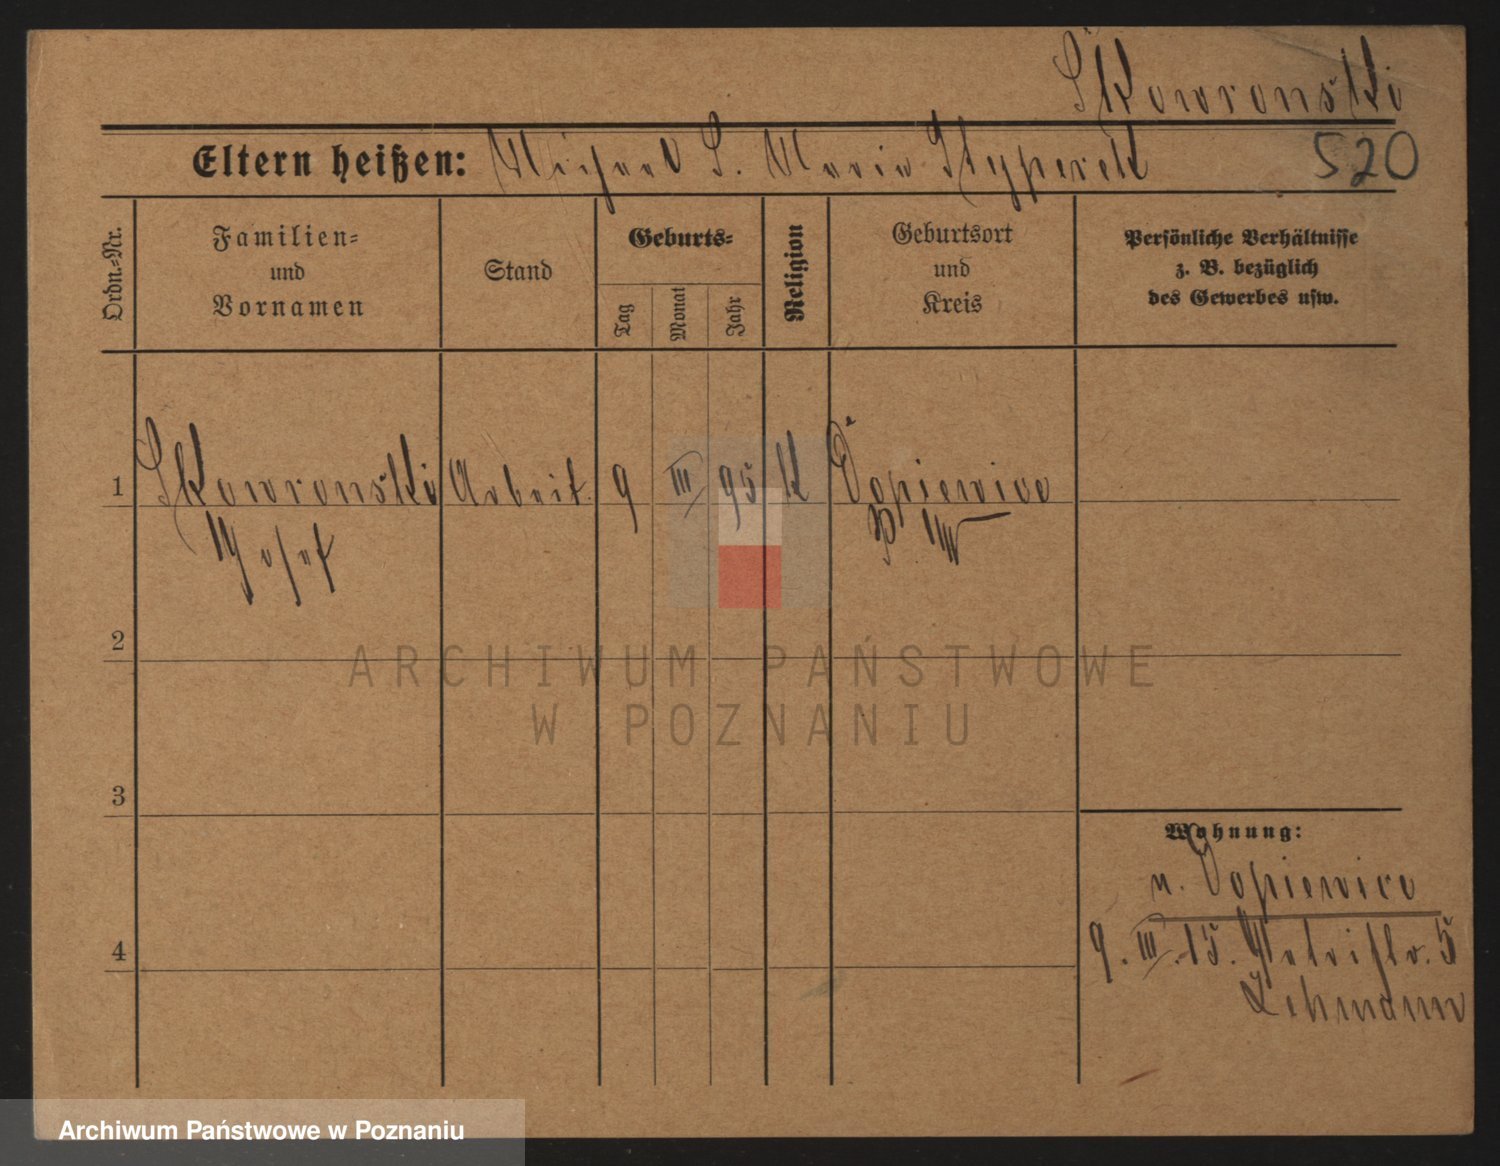 Skowronski
Eltern heißen: Michael S. Maria Styperek 520
Ordn.-Nr.
Familien-
und
Vornamen
Stand
Geburts-
Tag
Monat
Jahr
Religion
Geburtsort
und
Kreis
Persönliche Verhältnisse
z. B. bezüglich
des Gewerbes usw.
1 Skowronski Arbeit. 9 III 95 K Dopiewice
Josef P W
2
ARCHIWUM PAŃSTWOWE
W POZNANIU
3
Wohnung:
n. Dopiewice
4
9. III. 15. Petristr. 5
Lehmann
Archiwum Państwowe w Poznaniu